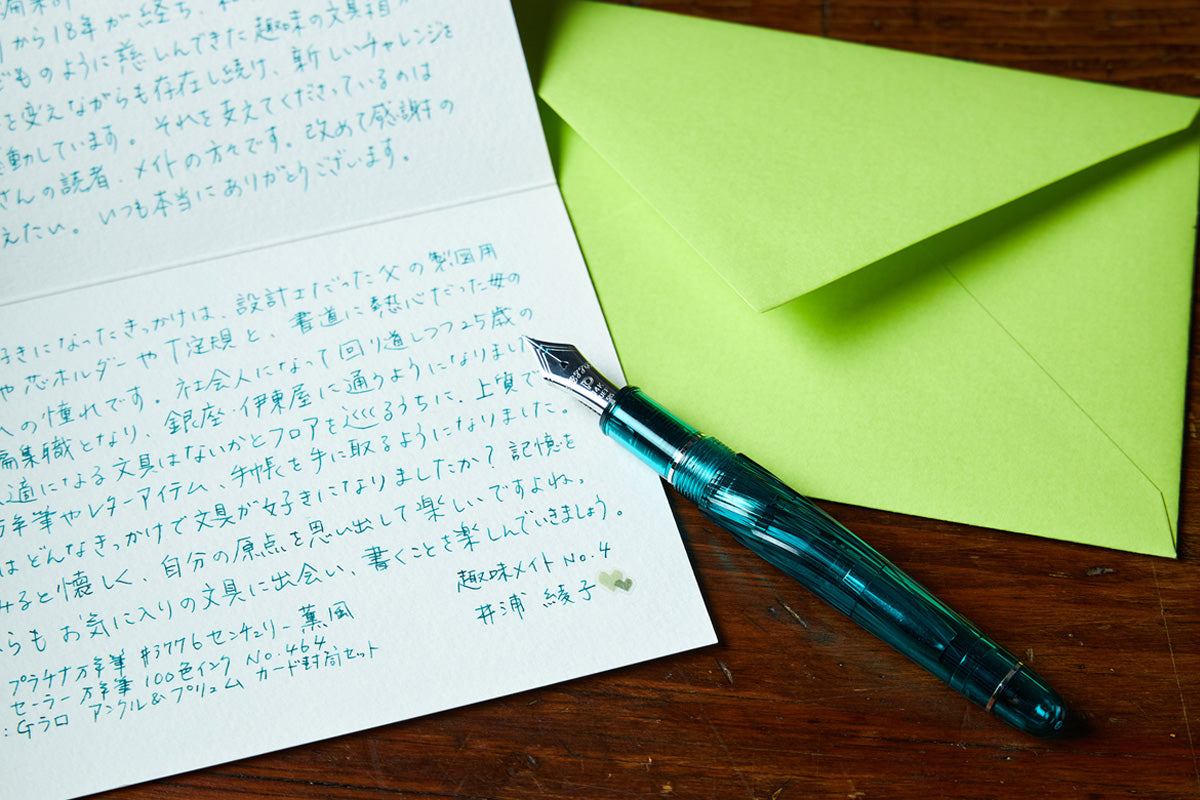 から18年が経ち、
どものように慈しんできた趣味の文具箱が
を変えながらも存在し続け、新しいチャレンジを
動しています。それを支えてくださっているのは
さんの読者、メイトの方々です。改めて感謝の
えたい。いつも本当にありがとうございます。
好きになったきっかけは、設計士だった父の製図用
や芯ホルダーやT定規と、書道に熱心だった母の
への憧れです。社会人になって回り道しつつ25歳の
編集職となり、銀座・伊東屋に通うようになりました
適になる文具はないかとフロアを巡るうちに、上質で
万年筆やレターアイテム、手帳を手に取るようになりました。
はどんなきっかけで文具が好きになりましたか？記憶を
みると懐しく、自分の原点を思い出して楽しいですよね。
らもお気に入りの文具に出会い、書くことを楽しんでいきましょう。
趣味メイトNo.4
井浦 綾子
プラチナ万年筆 #3776センチュリー 薫風
セーラー万年筆 100色インク No.464
:Gラロ アンクル&プリュム カード封筒セット